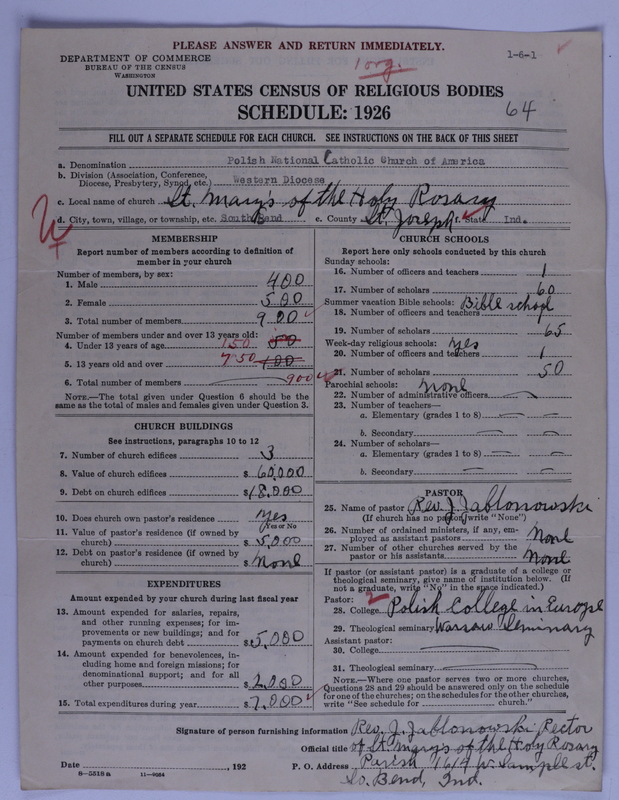 PLEASE ANSWER AND RETURN IMMEDIATELY.
1-6-1
DEPARTMENT OF COMMERCE
BUREAU OF THE CENSUS
WASHINGTON
1 org.
UNITED STATES CENSUS OF RELIGIOUS BODIES
SCHEDULE: 1926
64
FILL OUT A SEPARATE SCHEDULE FOR EACH CHURCH. SEE INSTRUCTIONS ON THE BACK OF THIS SHEET
a. Denomination Polish National Catholic Church of America
b. Division (Association, Conference, Diocese, Presbytery, Synod, etc.) Western Diocese
c. Local name of church St. Mary's of the Holy Rosary
d. City, town, village, or township, etc. South Bend e. County St. Joseph f. State Ind.
MEMBERSHIP
Report number of members according to definition of
member in your church
Number of members, by sex:
1. Male 400
2. Female 500
3. Total number of members 900
Number of members under and over 13 years old:
4. Under 13 years of age 150 50
5. 13 years old and over 750 100
6. Total number of members 900
NOTE.—The total given under Question 6 should be the
same as the total of males and females given under Question 3.
CHURCH BUILDINGS
See instructions, paragraphs 10 to 12
7. Number of church edifices 3
8. Value of church edifices $ 60,000
9. Debt on church edifices $ 18,000
10. Does church own pastor's residence Yes
Yes or No
11. Value of pastor's residence (if owned by
church) $ 5,000
12. Debt on pastor's residence (if owned by
church) $ None
EXPENDITURES
Amount expended by your church during last fiscal year
13. Amount expended for salaries, repairs,
and other running expenses; for im-
provements or new buildings; and for
payments on church debt $ 5,000
14. Amount expended for benevolences, in-
cluding home and foreign missions; for
denominational support; and for all
other purposes $ 2,000
15. Total expenditures during year $ 7,000
CHURCH SCHOOLS
Report here only schools conducted by this church
Sunday schools:
16. Number of officers and teachers 1
17. Number of scholars 60
Summer vacation Bible schools: Bible school
18. Number of officers and teachers
19. Number of scholars 65
Week-day religious schools: Yes
20. Number of officers and teachers 1
21. Number of scholars 50
Parochial schools: None
22. Number of administrative officers
23. Number of teachers—
a. Elementary (grades 1 to 8)
b. Secondary
24. Number of scholars—
a. Elementary (grades 1 to 8)
b. Secondary
PASTOR
25. Name of pastor Rev. J. Jablonowski
(If church has no pastor, write "None")
26. Number of ordained ministers, if any, em-
ployed as assistant pastors None
27. Number of other churches served by the
pastor or his assistants None
If pastor (or assistant pastor) is a graduate of a college or
theological seminary, give name of institution below. (If
not a graduate, write "No" in the space indicated.)
Pastor:
28. College Polish College in Europe
29. Theological seminary Warsaw Seminary
Assistant pastor:
30. College
31. Theological seminary
NOTE.—Where one pastor serves two or more churches,
Questions 28 and 29 should be answered only on the schedule
for one of the churches; on the schedules for the other churches,
write "See schedule for church."
Signature of person furnishing information Rev. J. Jablonowski Rector
Official title of St. Mary's of the Holy Rosary
Date , 192 P. O. Address Parish 1614 W. Sample St.
So. Bend, Ind.
8—5518 a 11—9084